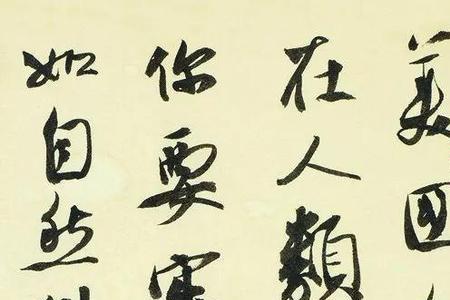 美国
在人類
你要寫
如自然